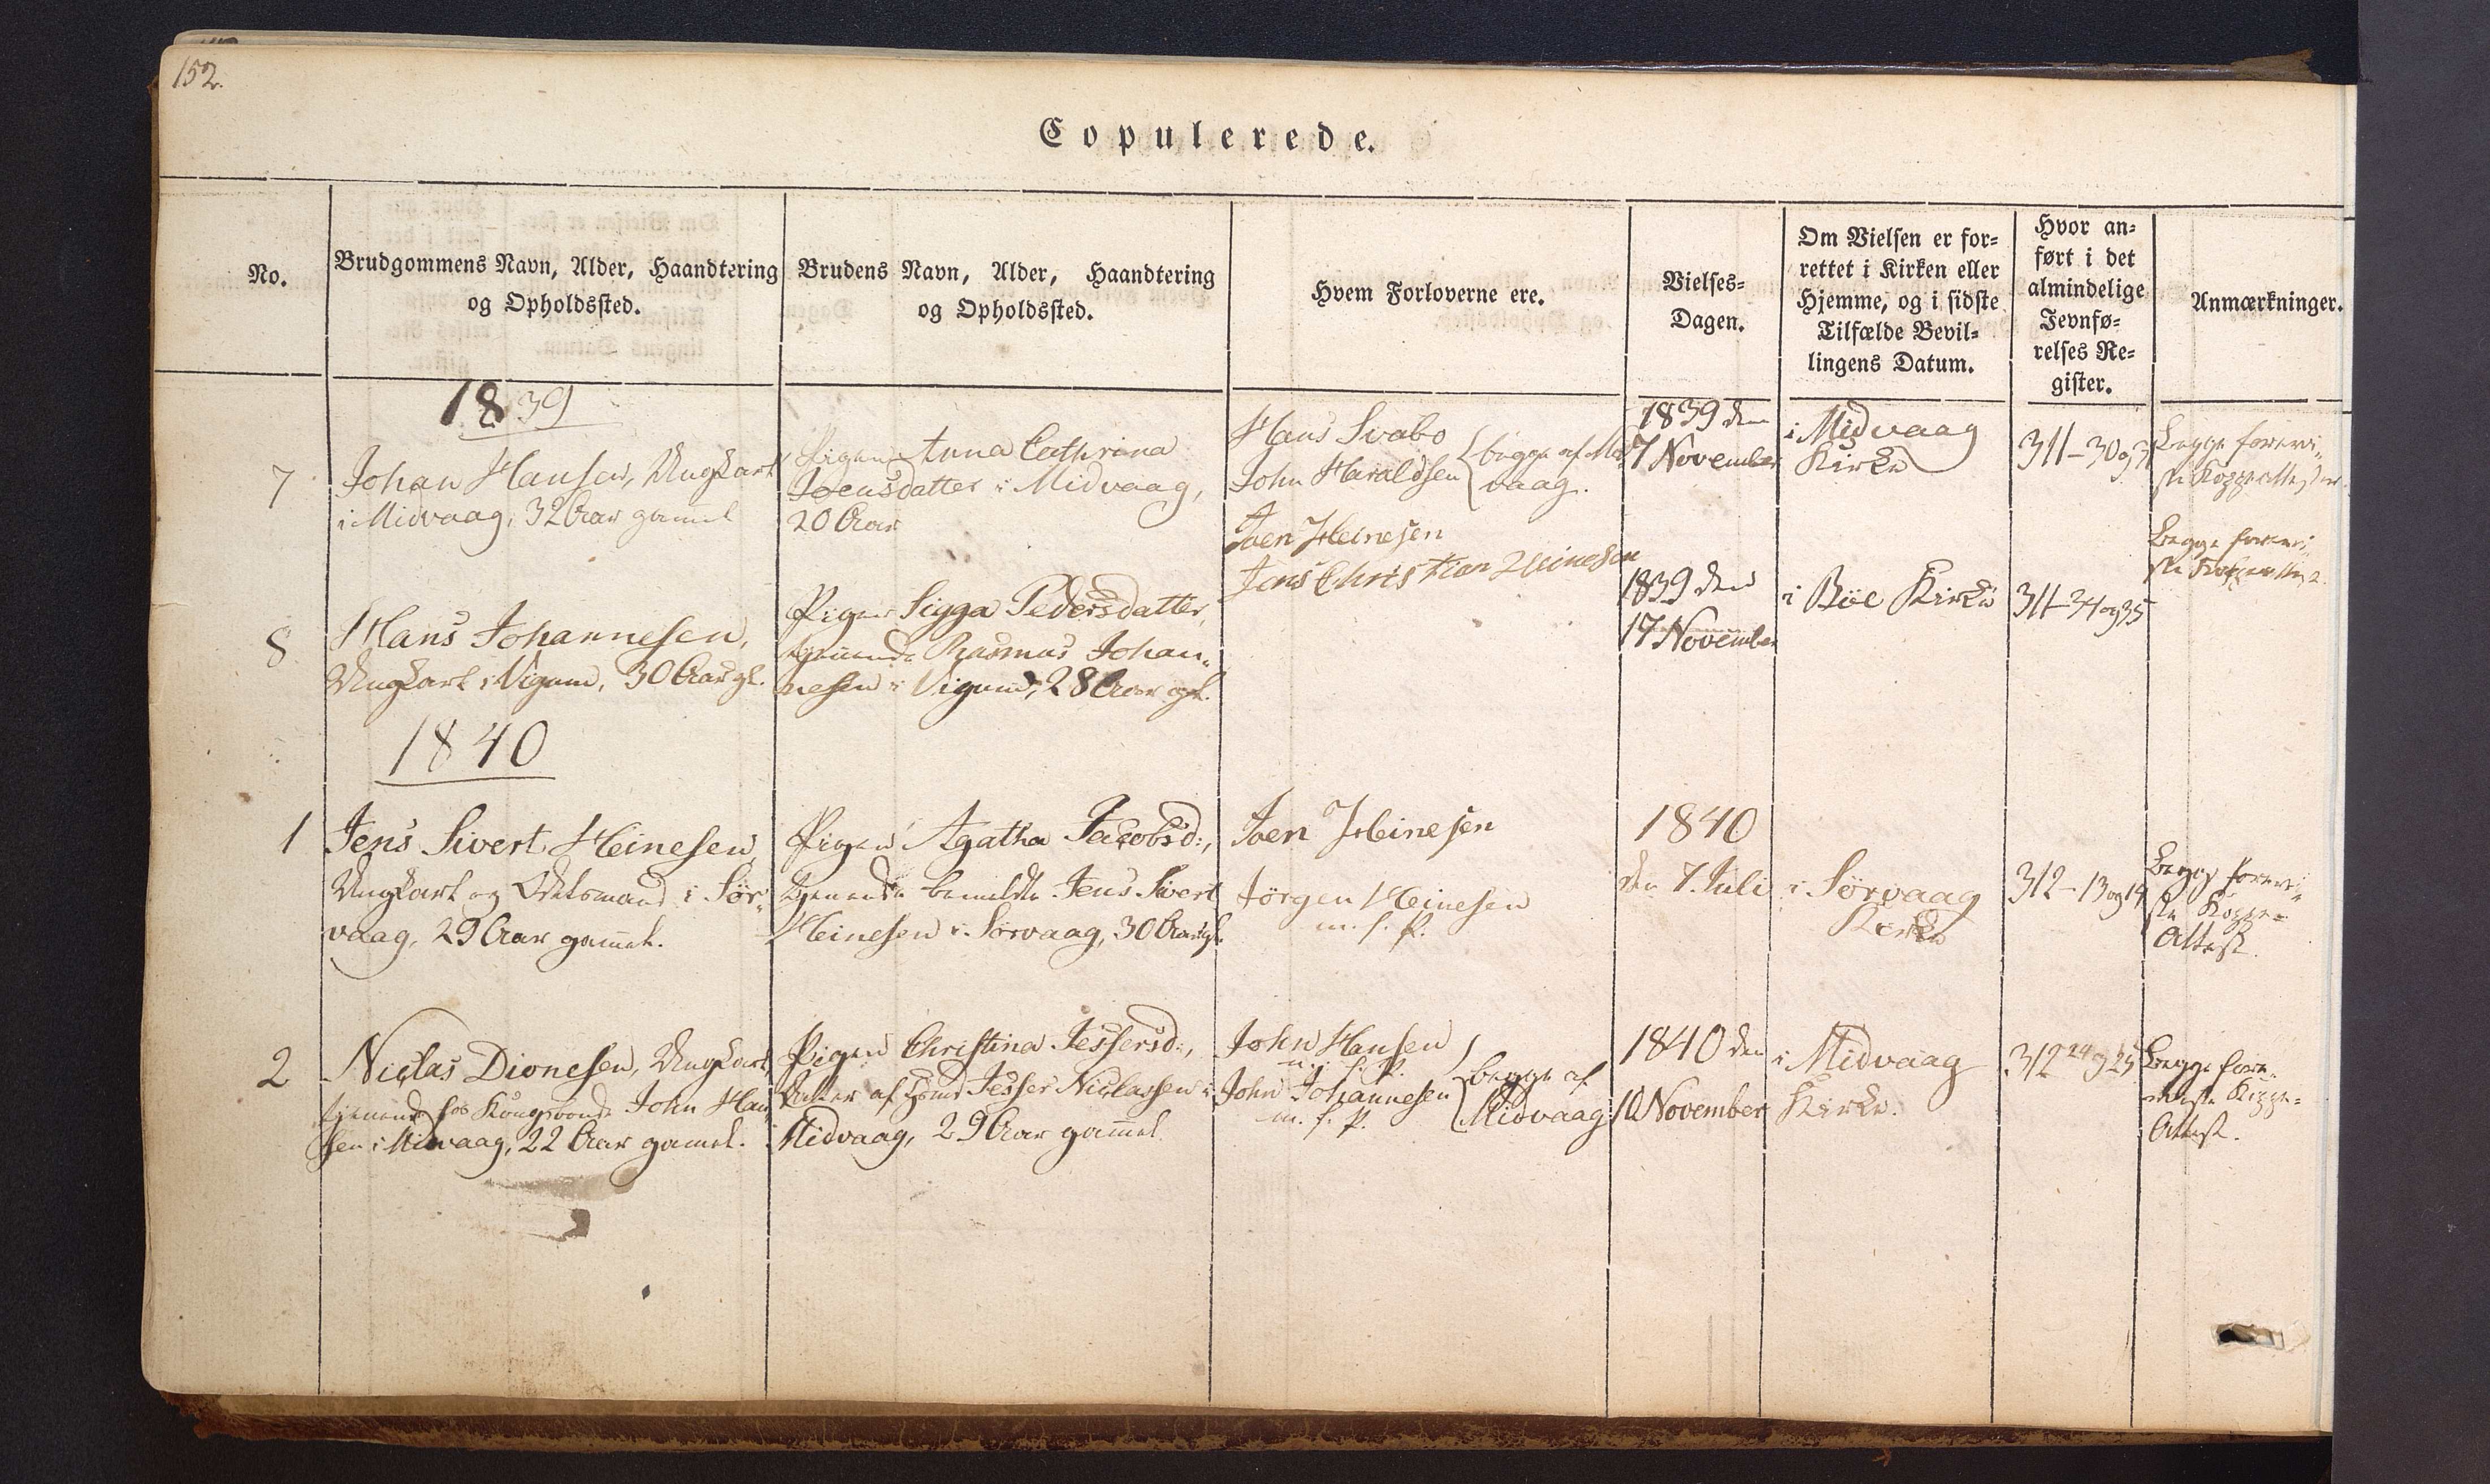 152.
Copulerede.
No.
Brudgommens Navn, Alder, Haandtering
og Opholdssted.
Brudens Navn, Alder, Haandtering
og Opholdssted.
Hvem Forloverne ere.
Vielses-
Dagen.
Om Vielsen er for-
rettet i Kirken eller
Hjemme, og i sidste
Tilfælde Bevil-
lingens Datum.
Hvor an-
ført i det
almindelige
Jevnfø-
relses Re-
gister.
Anmærkninger.
1839
7
Johan Hansen, Ungkarl
i Midvaag, 32 Aar gamel
Pigen Anna Cathrina
Joensdatter i Midvaag,
20 Aar
Hans Svabo
John Haraldsen
begge af Mid
vaag.
1839 den
7 November
i Midvaag
Kirke
311-30 og 31
Begge forevi-
ste Koppeattester.
8
Hans Johannesen,
Ungkarl i Vigum, 30 Aar gl.
Pigen Sigga Pedersdatter,
tjenende Rasmus Johan-
nesen i Vigum, 28 Aar gl.
Joen Heinesen
Jens Christian Heinesen
1839 den
17 November
i Böe Kirke
311-34 og 35
Begge forevi-
ste Koppeattest.
1840
1
Jens Sivert Heinesen,
Ungkarl og Odelsmand i Sør-
vaag, 29 Aar gamel.
Pigen Agatha Jacobsd:,
tjenende bemeldte Jens Sivert
Heinesen i Sørvaag, 30 Aar gl.
Joen Heinesen
Jörgen Heinesen
m. f. P.
1840
den 7. Juli
i Sørvaag
Kirke
312-13 og 14
Begge forevi-
ste Koppe-
Attest.
2
Niclas Dionesen, Ungkarl,
tjenende hos Kongsbonde John Han
sen i Midvaag, 22 Aar gamel.
Pigen Christina Jespersd:,
Datter af Jesper Niclassen i
Midvaag, 29 Aar gamel
John Hansen
m. f. P.
John Johannesen
m. f. P.
begge af
Midvaag
1840 den
10 November
i Midvaag
Kirke.
312 24 og 25
Begge fore-
viste Koppe-
Attest.